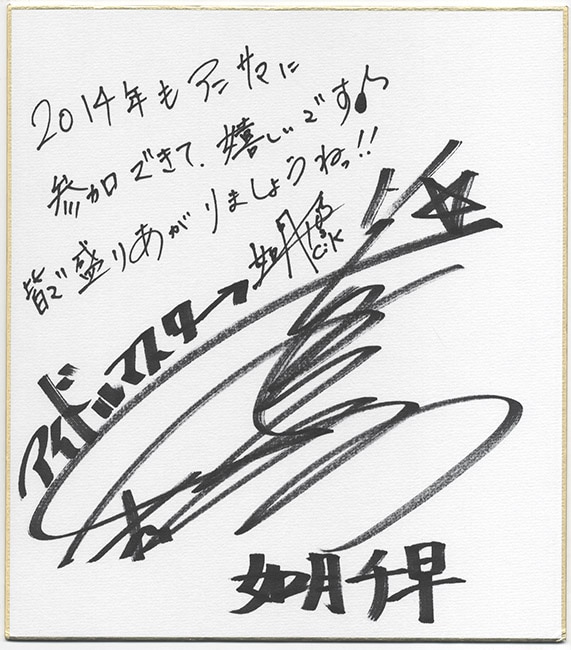 2014年も アニサマに
参加できて、嬉しいです♪
皆で盛りあがりましょうねっ!!
アイドルマスター
如月千早